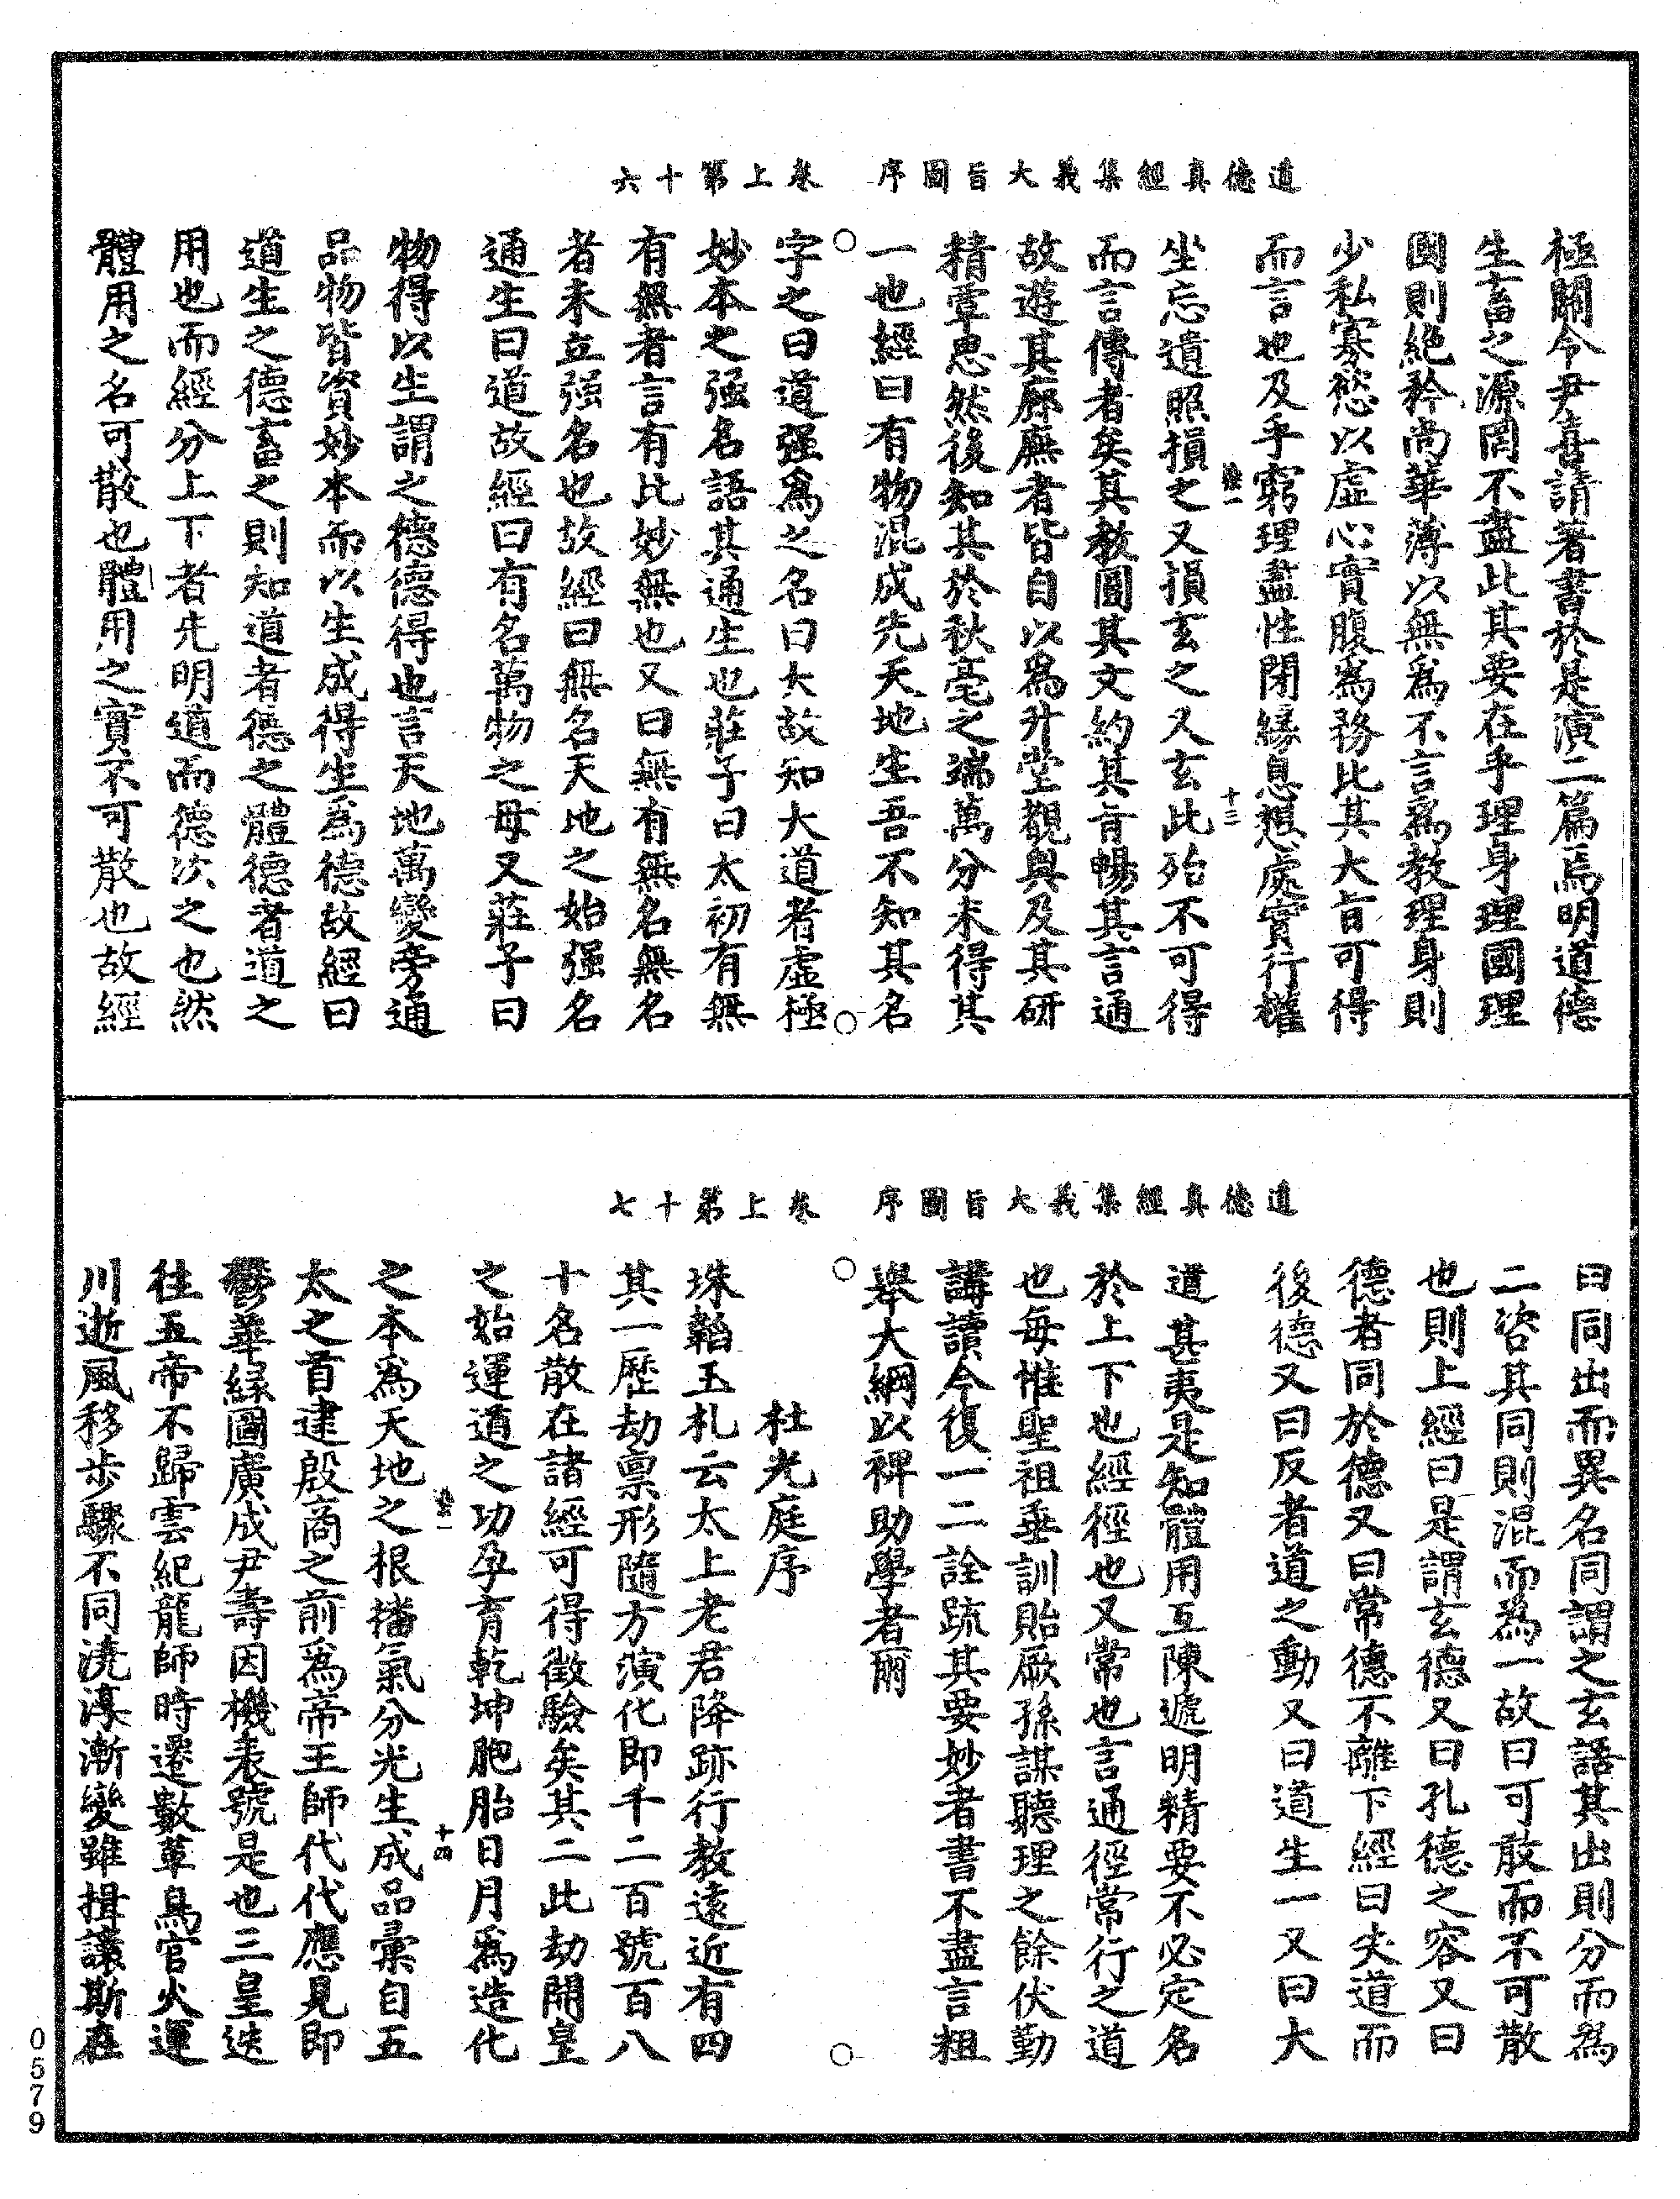 道德真經集義大旨圖序　卷上第十六
極關令尹喜請著書於是演二篇焉明道德
生畜之源罔不盡此其要在乎理身理國理
國則絕矜尚華薄以無爲不言爲教理身則
少私寡慾以虛心實腹爲務比其大旨可得
而言也及乎窮理盡性閉緣息想處實行權
坐忘遺照損之又損玄之又玄此殆不可得
而言傳者矣其教圓其文約其旨暢其言通
故遊其廊廡者皆自以爲升堂覩奧及其研
精覃思然後知其於秋毫之端萬分未得其
一也經曰有物混成先天地生吾不知其名
字之曰道强爲之名曰大故知大道者虛極
妙本之强名語其通生也莊子曰太初有無
有無者言有比妙無也又曰無有無名無名
者未立强名也故經曰無名天地之始强名
通生曰道故經曰有名萬物之母又莊子曰
物得以生謂之德德得也言天地萬變旁通
品物皆資妙本而以生成得生爲德故經曰
道生之德畜之則知道者德之體德者道之
用也而經分上下者先明道而德次之也然
體用之名可散也體用之實不可散也故經
十三
道德真經集義大旨圖序　卷上第十七
曰同出而異名同謂之玄語其出則分而爲
二咨其同則混而爲一故曰可散而不可散
也則上經曰是謂玄德又曰孔德之容又曰
德者同於德又曰常德不離下經曰失道而
後德又曰反者道之動又曰道生一又曰大
道甚夷是知體用互陳遞明精要不必定名
於上下也經徑也又常也言通徑常行之道
也每惟聖祖垂訓貽厥孫謀聽理之餘伏勤
講讀今復一二詮疏其要妙者書不盡言粗
舉大綱以裨助學者爾
杜光庭序
珠韜玉札云太上老君降跡行教遠近有四
其一歷劫禀形隨方演化即千二百號百八
十名散在諸經可得徵驗矣其二此劫開皇
之始運道之功孕育乾坤胞胎日月爲造化
之本爲天地之根播氣分光生成品彙自五
太之首逮殷商之前爲帝王師代代應見即
鬱華綠圖廣成尹壽因機表號是也三皇迭
往五帝不歸雲紀龍師時遷數革鳥官火運
川逝風移步驟不同澆淳漸變雖揖讓斯在
十四
0579